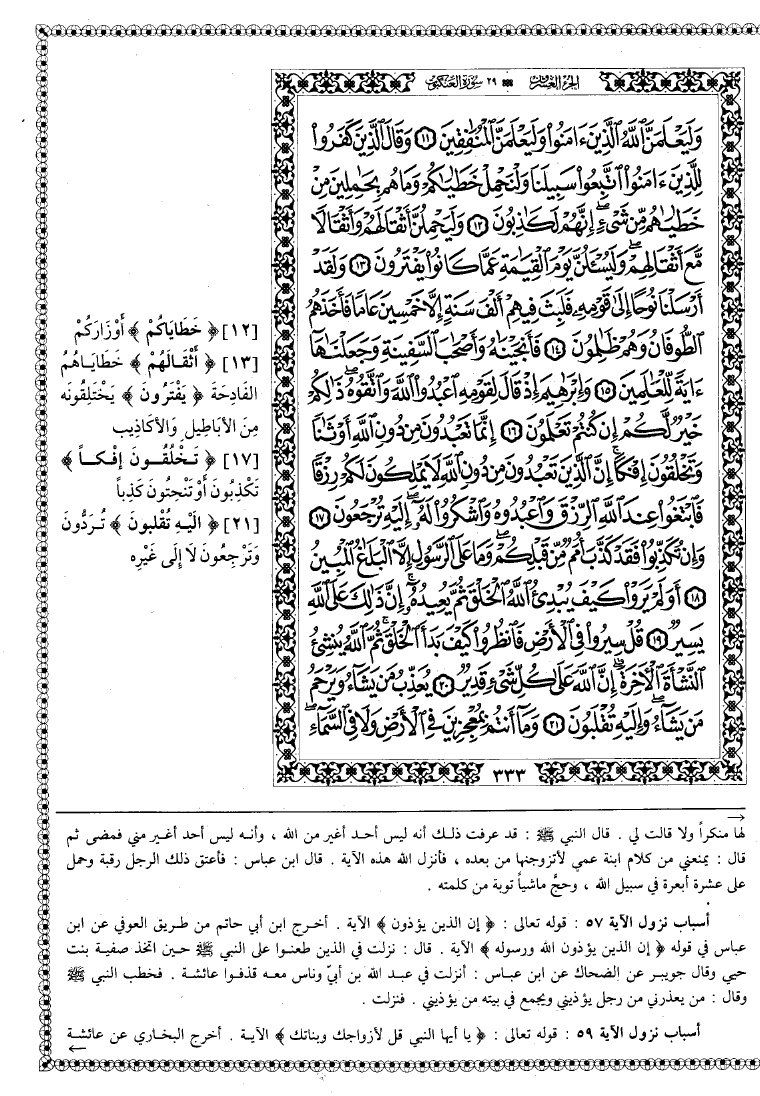 الجزء العشرون ٢٩ سورة العنكبوت
وَلَيَعْلَمَنَّ ٱللَّهُ ٱلَّذِينَ ءَامَنُوا۟ وَلَيَعْلَمَنَّ ٱلْمُنَٰفِقِينَ ⑪ وَقَالَ ٱلَّذِينَ كَفَرُوا۟
لِلَّذِينَ ءَامَنُوا۟ ٱتَّبِعُوا۟ سَبِيلَنَا وَلْنَحْمِلْ خَطَٰيَٰكُمْ وَمَا هُم بِحَٰمِلِينَ مِنْ
خَطَٰيَٰهُم مِّن شَىْءٍ ۖ إِنَّهُمْ لَكَٰذِبُونَ ⑫ وَلَيَحْمِلُنَّ أَثْقَالَهُمْ وَأَثْقَالًا
مَّعَ أَثْقَالِهِمْ ۖ وَلَيُسْـَٔلُنَّ يَوْمَ ٱلْقِيَٰمَةِ عَمَّا كَانُوا۟ يَفْتَرُونَ ⑬ وَلَقَدْ
أَرْسَلْنَا نُوحًا إِلَىٰ قَوْمِهِۦ فَلَبِثَ فِيهِمْ أَلْفَ سَنَةٍ إِلَّا خَمْسِينَ عَامًا فَأَخَذَهُمُ
ٱلطُّوفَانُ وَهُمْ ظَٰلِمُونَ ⑭ فَأَنجَيْنَٰهُ وَأَصْحَٰبَ ٱلسَّفِينَةِ وَجَعَلْنَٰهَآ
ءَايَةً لِّلْعَٰلَمِينَ ⑮ وَإِبْرَٰهِيمَ إِذْ قَالَ لِقَوْمِهِ ٱعْبُدُوا۟ ٱللَّهَ وَٱتَّقُوهُ ۖ ذَٰلِكُمْ
خَيْرٌ لَّكُمْ إِن كُنتُمْ تَعْلَمُونَ ⑯ إِنَّمَا تَعْبُدُونَ مِن دُونِ ٱللَّهِ أَوْثَٰنًا
وَتَخْلُقُونَ إِفْكًا ۚ إِنَّ ٱلَّذِينَ تَعْبُدُونَ مِن دُونِ ٱللَّهِ لَا يَمْلِكُونَ لَكُمْ رِزْقًا
فَٱبْتَغُوا۟ عِندَ ٱللَّهِ ٱلرِّزْقَ وَٱعْبُدُوهُ وَٱشْكُرُوا۟ لَهُۥٓ ۖ إِلَيْهِ تُرْجَعُونَ ⑰
وَإِن تُكَذِّبُوا۟ فَقَدْ كَذَّبَ أُمَمٌ مِّن قَبْلِكُمْ ۖ وَمَا عَلَى ٱلرَّسُولِ إِلَّا ٱلْبَلَٰغُ ٱلْمُبِينُ
⑱ أَوَلَمْ يَرَوْا۟ كَيْفَ يُبْدِئُ ٱللَّهُ ٱلْخَلْقَ ثُمَّ يُعِيدُهُۥٓ ۚ إِنَّ ذَٰلِكَ عَلَى ٱللَّهِ
يَسِيرٌ ⑲ قُلْ سِيرُوا۟ فِى ٱلْأَرْضِ فَٱنظُرُوا۟ كَيْفَ بَدَأَ ٱلْخَلْقَ ۚ ثُمَّ ٱللَّهُ يُنشِئُ
ٱلنَّشْأَةَ ٱلْءَاخِرَةَ ۚ إِنَّ ٱللَّهَ عَلَىٰ كُلِّ شَىْءٍ قَدِيرٌ ⑳ يُعَذِّبُ مَن يَشَآءُ وَيَرْحَمُ
مَن يَشَآءُ ۖ وَإِلَيْهِ تُقْلَبُونَ ㉑ وَمَآ أَنتُم بِمُعْجِزِينَ فِى ٱلْأَرْضِ وَلَا فِى ٱلسَّمَآءِ ۖ
٣٣٣
[١٢] ﴿ خَطَايَاكُمْ ﴾ أَوْزَارَكُمْ
[١٣] ﴿ أَثْقَـالَهُمْ ﴾ خَطَايَـاهُمُ
الفَادِحَةَ ﴿ يَفْتَرُونَ ﴾ يَخْتَلِقُونَه
مِنَ الأَبَاطِيلِ وَالأَكَاذِيبِ
[١٧] ﴿ تَـخْلُقُــونَ إِفْكـاً ﴾
تَكْذِبُونَ أَوْ تَنْحِتُونَ كَذِباً
[٢١] ﴿ الَيْهِ تُقْلبونَ ﴾ تُـرَدُّونَ
وَتَرْجِعُونَ لَا إِلَى غَيْرِهِ
لها منكراً ولا قالت لي . قال النبي ﷺ : قد عرفت ذلـك أنه ليس أحـد أغير من الله ، وأنـه ليس أحد أغـير مني فمضى ثم
قال : يمنعني من كلام ابنة عمي لأتزوجنها من بعده ، فأنزل الله هذه الآية . قال ابن عباس : فأعتق ذلك الرجل رقبة وحمل
على عشرة أبعرة في سبيل الله ، وحجَّ ماشياً توبة من كلمته .
أسباب نزول الآية ٥٧ : قوله تعالى : ﴿ إن الذين يؤذون ﴾ الآية . أخـرج ابن أبي حاتم من طـريق العوفي عن ابن
عباس في قوله ﴿ إن الذين يؤذون الله ورسوله ﴾ الآية . قال : نزلت في الذين طعنـوا على النبي ﷺ حـين اتخذ صفيـة بنت
حيي وقال جويبـر عن الضحاك عن ابن عبـاس : أنزلت في عبـد الله بن أبيّ وناس معـه قذفـوا عائشـة . فخطب النبي ﷺ
وقال : من يعذرني من رجل يؤذيني ويجمع في بيته من يؤذيني . فنزلت .
أسباب نزول الآية ٥٩ : قوله تعالى : ﴿ يا أيها النبي قل لأزواجك وبناتك ﴾ الآيـة . أخرج البخـاري عن عائشـة